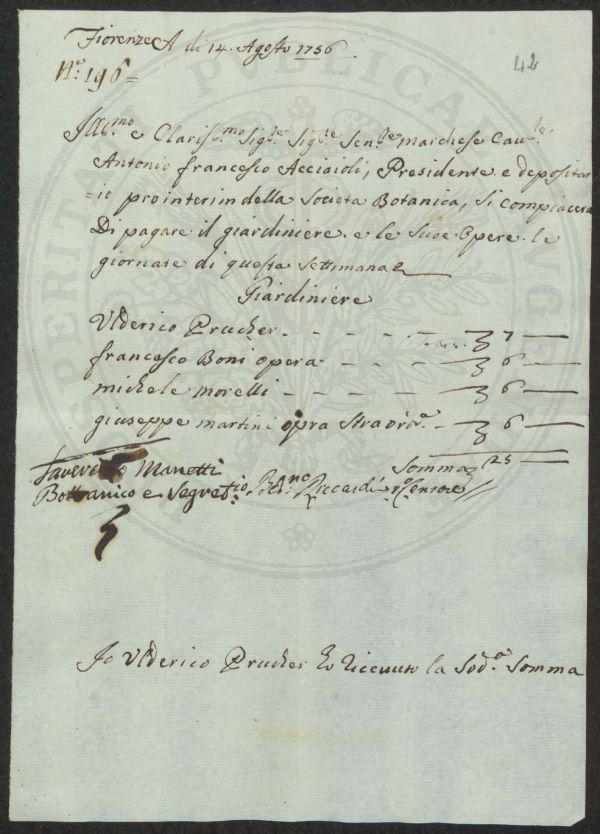 Fiorenze A di 14. Agosto 1756.
42
N.º 196=
Ill.mo e Claris.mo Sig.re Sig.re Sen.re Marchese Cau.re
Antonio francesco Acciaioli, Presidente e depositar
=io prointerim della Societa Botanica, Si compiacera
Di pagare il giardiniere e le Sue Opere le
giornate di questa Settimana
Giardiniere
Ulderico Prucher - - - - - 7 —
francesco Boni opera - - - 6 —
michele morelli - - - - 6 —
giuseppe martini opra Straord.ª - 6 —
Somma 25 —
Saverio Manetti
Bottanico e Segret.io
Riccardi Censore
Io Ulderico Prucher ho riceuuto la Sod.ª Somma